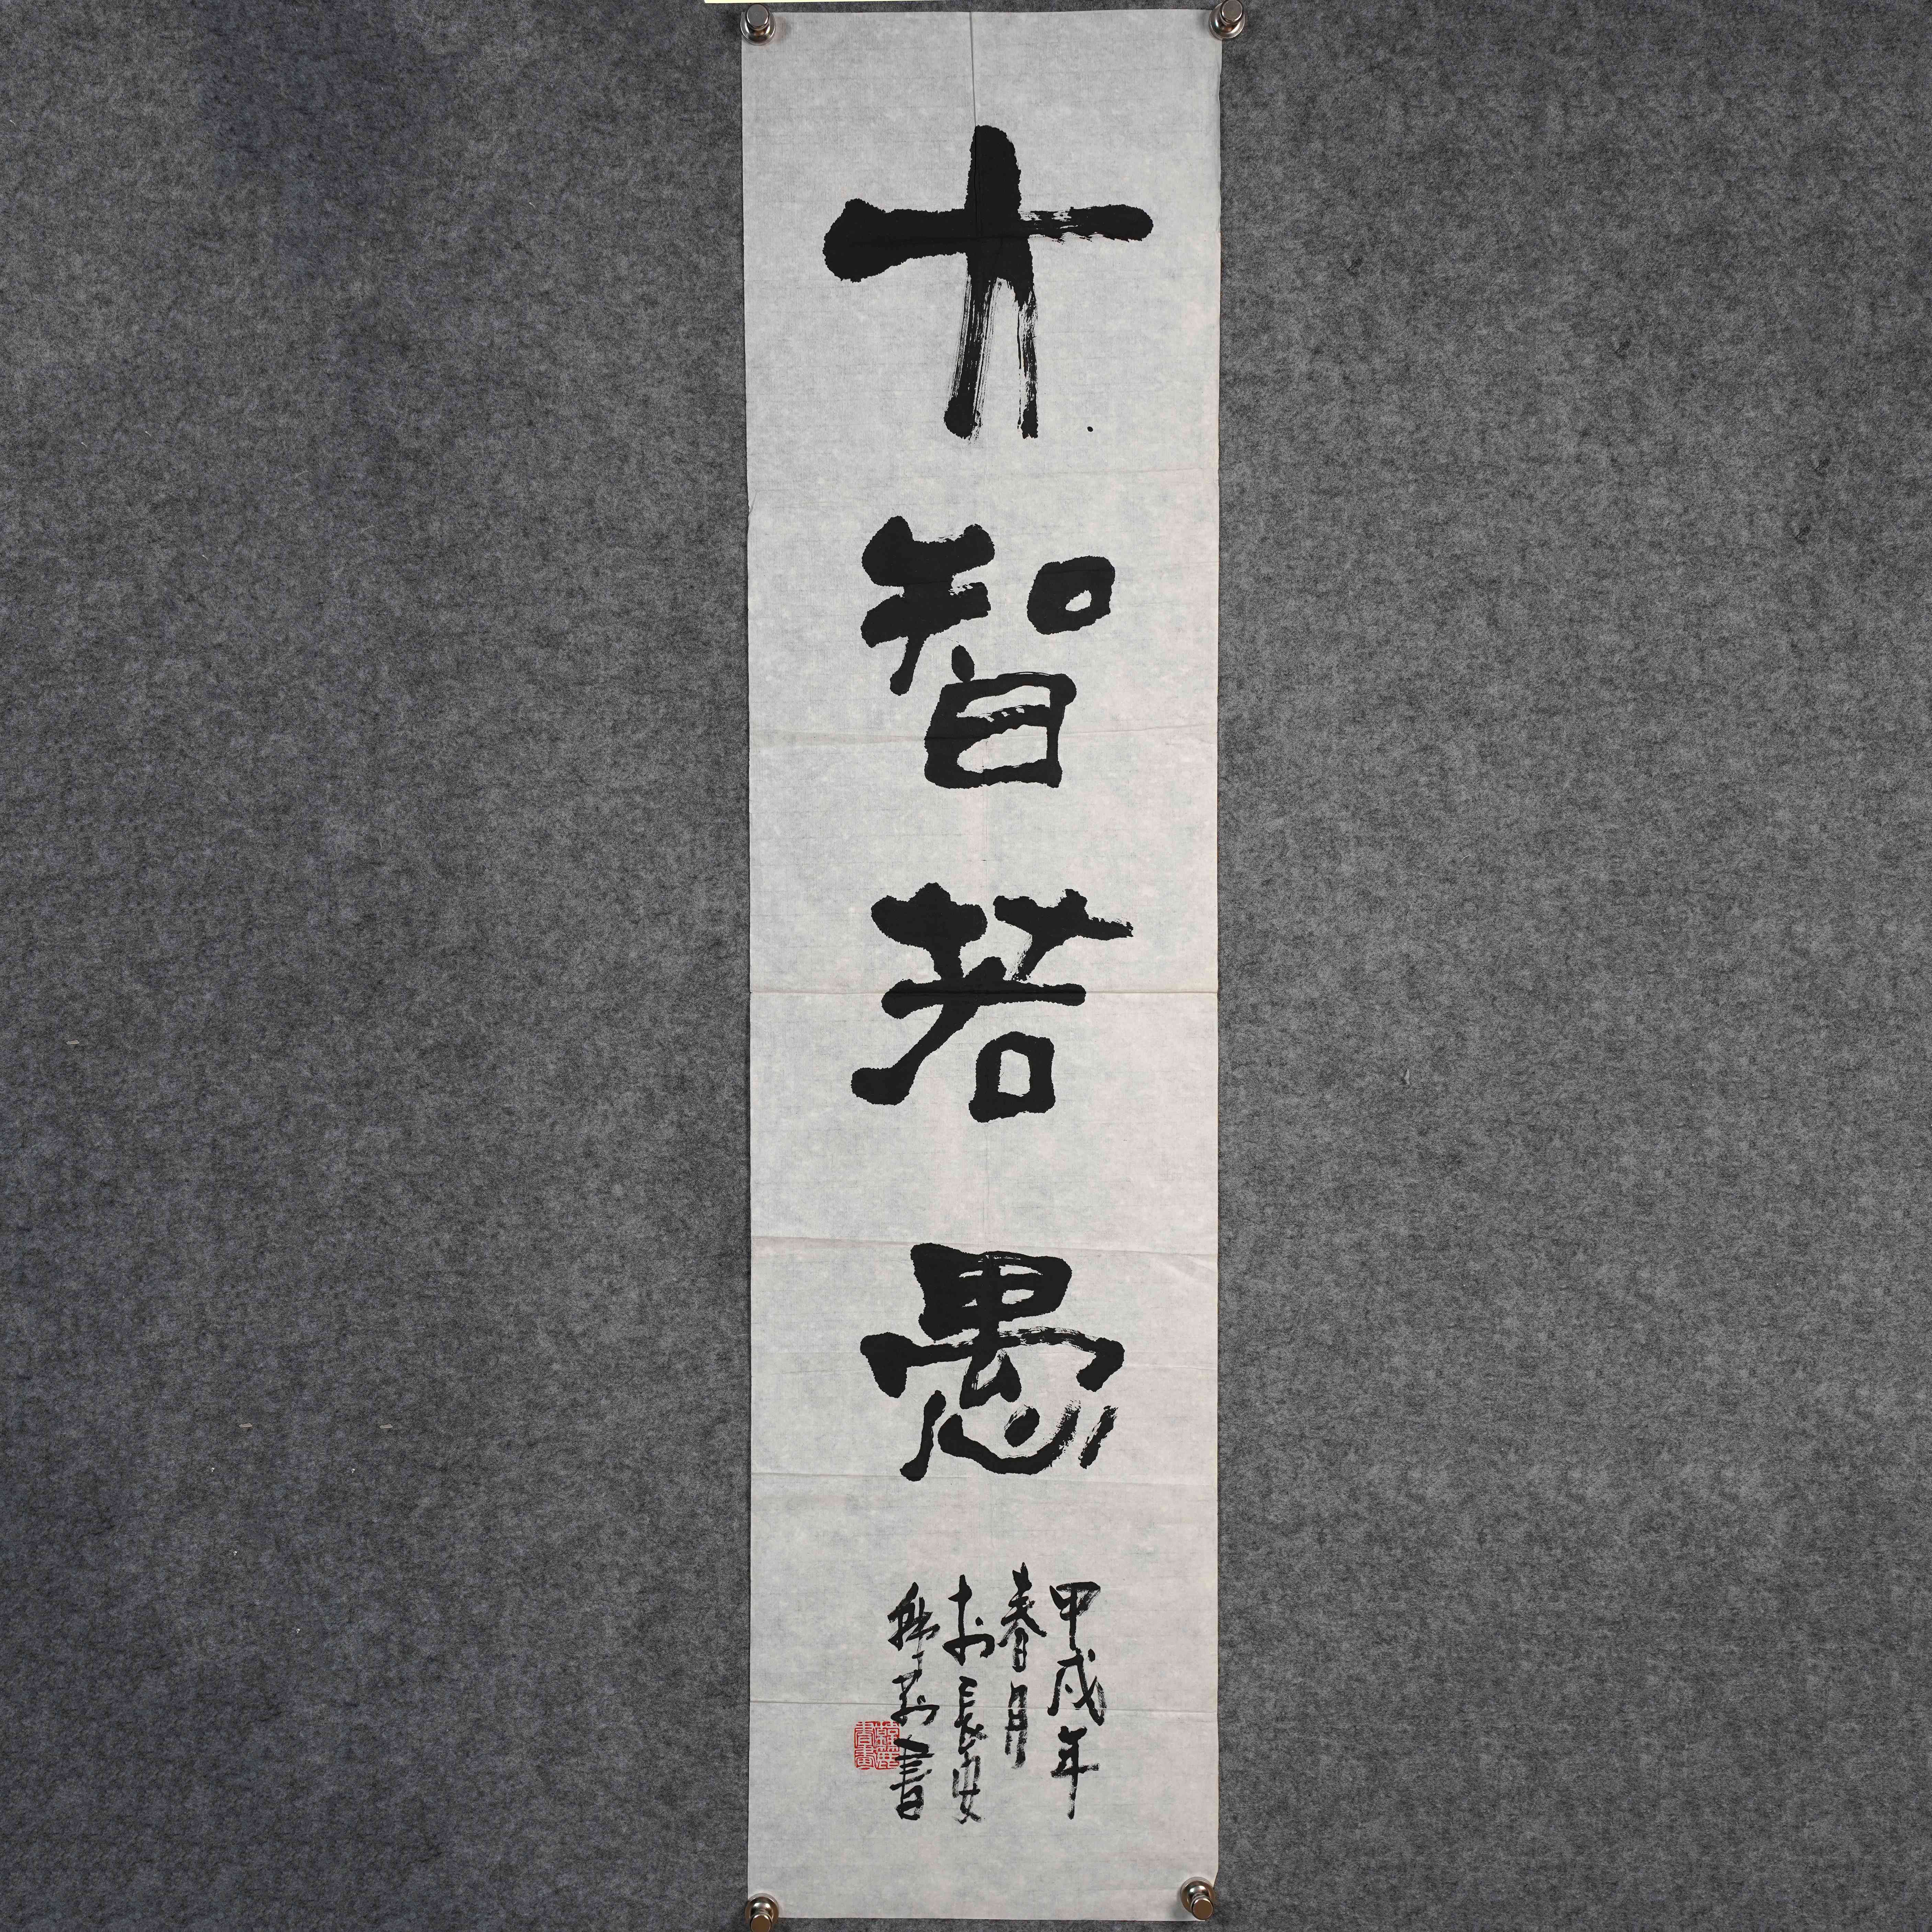 大智若愚
甲戌年
春月
於長安
書